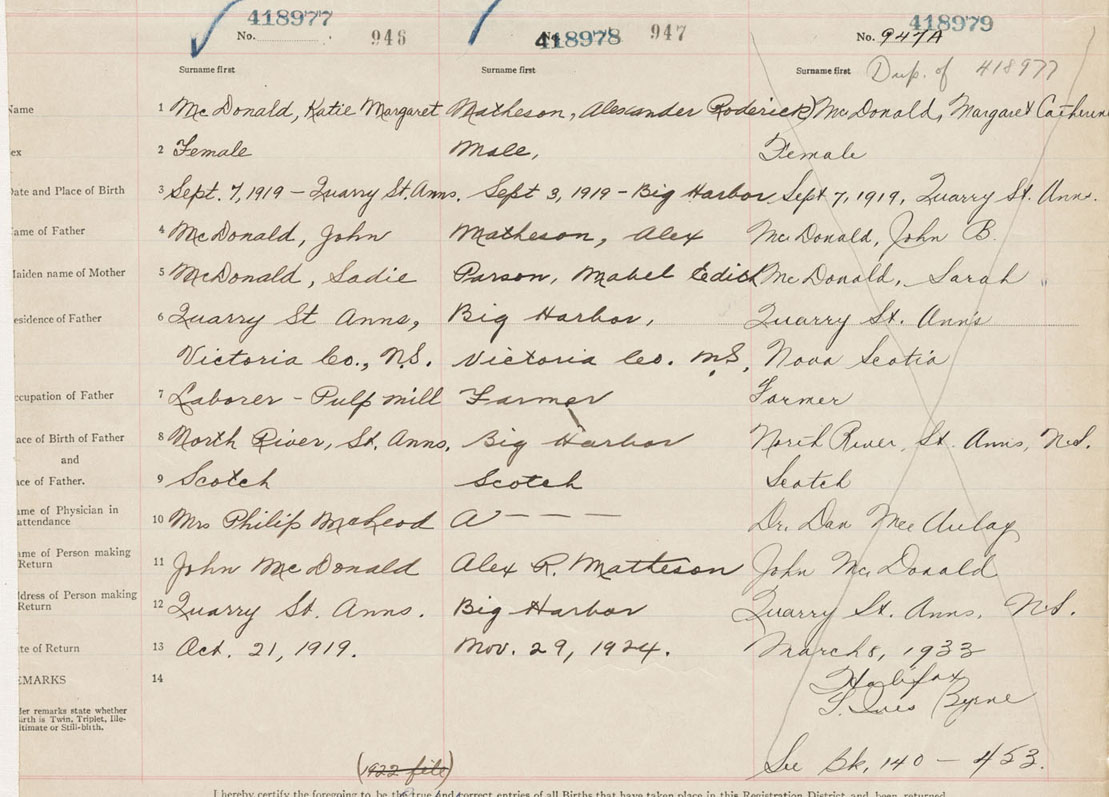 418977 418978 418979
No. 946 No. 947 No. 947A
Surname first Surname first Surname first Dup. of 418977
Name 1 McDonald, Katie Margaret Matheson, Alexander Roderick McDonald, Margaret Catherine
ex 2 Female Male, Female
Date and Place of Birth 3 Sept. 7, 1919 – Quarry St. Anns. Sept 3, 1919 – Big Harbor Sept 7, 1919, Quarry St. Anns.
ame of Father 4 McDonald, John Matheson, Alex McDonald, John B.
Maiden name of Mother 5 McDonald, Sadie Parson, Mabel Edith McDonald, Sarah
esidence of Father 6 Quarry St Anns, Big Harbor, Quarry St. Ann's
Victoria Co., N.S. Victoria Co. N.S. Nova Scotia
ccupation of Father 7 Laborer – Pulp mill Farmer Farmer
ace of Birth of Father 8 North River, St. Anns, Big Harbor North River, St. Anns, N.S.
and
ce of Father. 9 Scotch Scotch Scotch
ame of Physician in
attendance 10 Mrs Philip McLeod a – – – Dr. Dan MacAulay
ame of Person making
Return 11 John McDonald Alex R. Matheson John McDonald
ddress of Person making
Return 12 Quarry St. Anns. Big Harbor Quarry St. Anns, N.S.
te of Return 13 Oct. 21, 1919. Nov. 29, 1924. March 8, 1933
EMARKS 14 Halifax
der remarks state whether
irth is Twin, Triplet, Ille-
itimate or Still-birth.
Byrne
(1922 file) See Bk, 140 – 453.
I hereby certify the foregoing to be the true and correct entries of all Births that have taken place in this Registration District and been returned